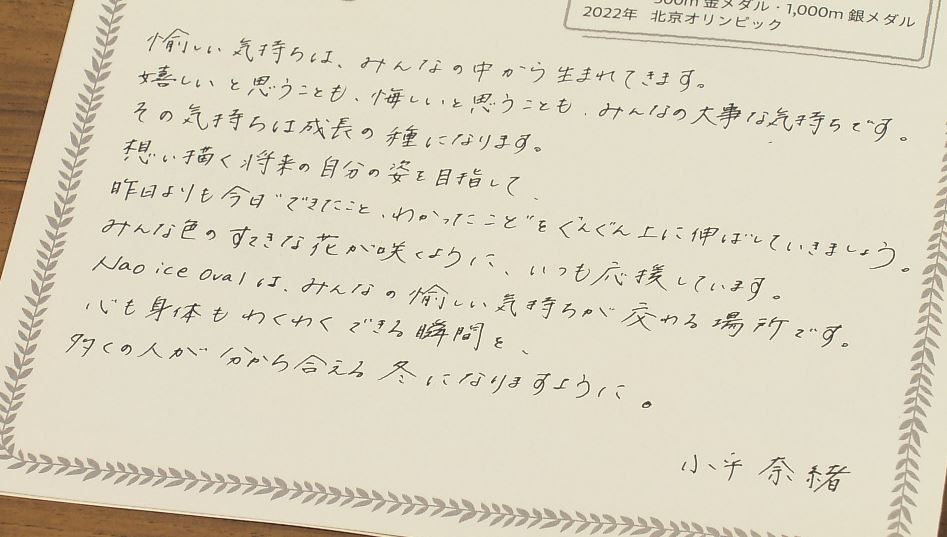 500m 金メダル・1,000m 銀メダル
2022年 北京オリンピック
愉しい気持ちは、みんなの中から生まれてきます。
嬉しいと思うことも、悔しいと思うことも、みんなの大事な気持ちです。
その気持ちは成長の種になります。
想い描く将来の自分の姿を目指して、
昨日よりも今日できたこと、わかったことをぐんぐん上に伸ばしていきましょう。
みんな色のすてきな花が咲くように、いつも応援しています。
Nao ice oval は、みんなの愉しい気持ちが交わる場所です。
心も身体もわくわくできる瞬間を、
多くの人が分から合える冬になりますように。
小平 奈緒